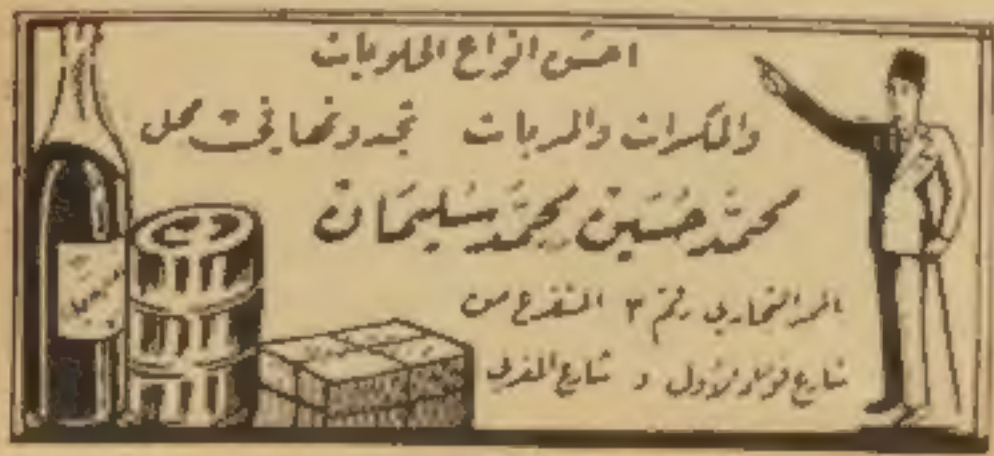 احسن انواع الحلويات
والمكسرات والمربات تجدونها في محل
محمد حسين محمد سليمان
بالممر التجاري رقم ٣ المتفرع من
شارع فؤاد الأول و شارع المغربي